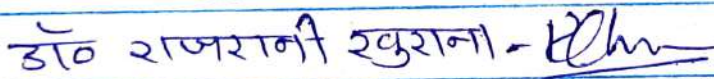 डॉ० राजरानी खुराना -